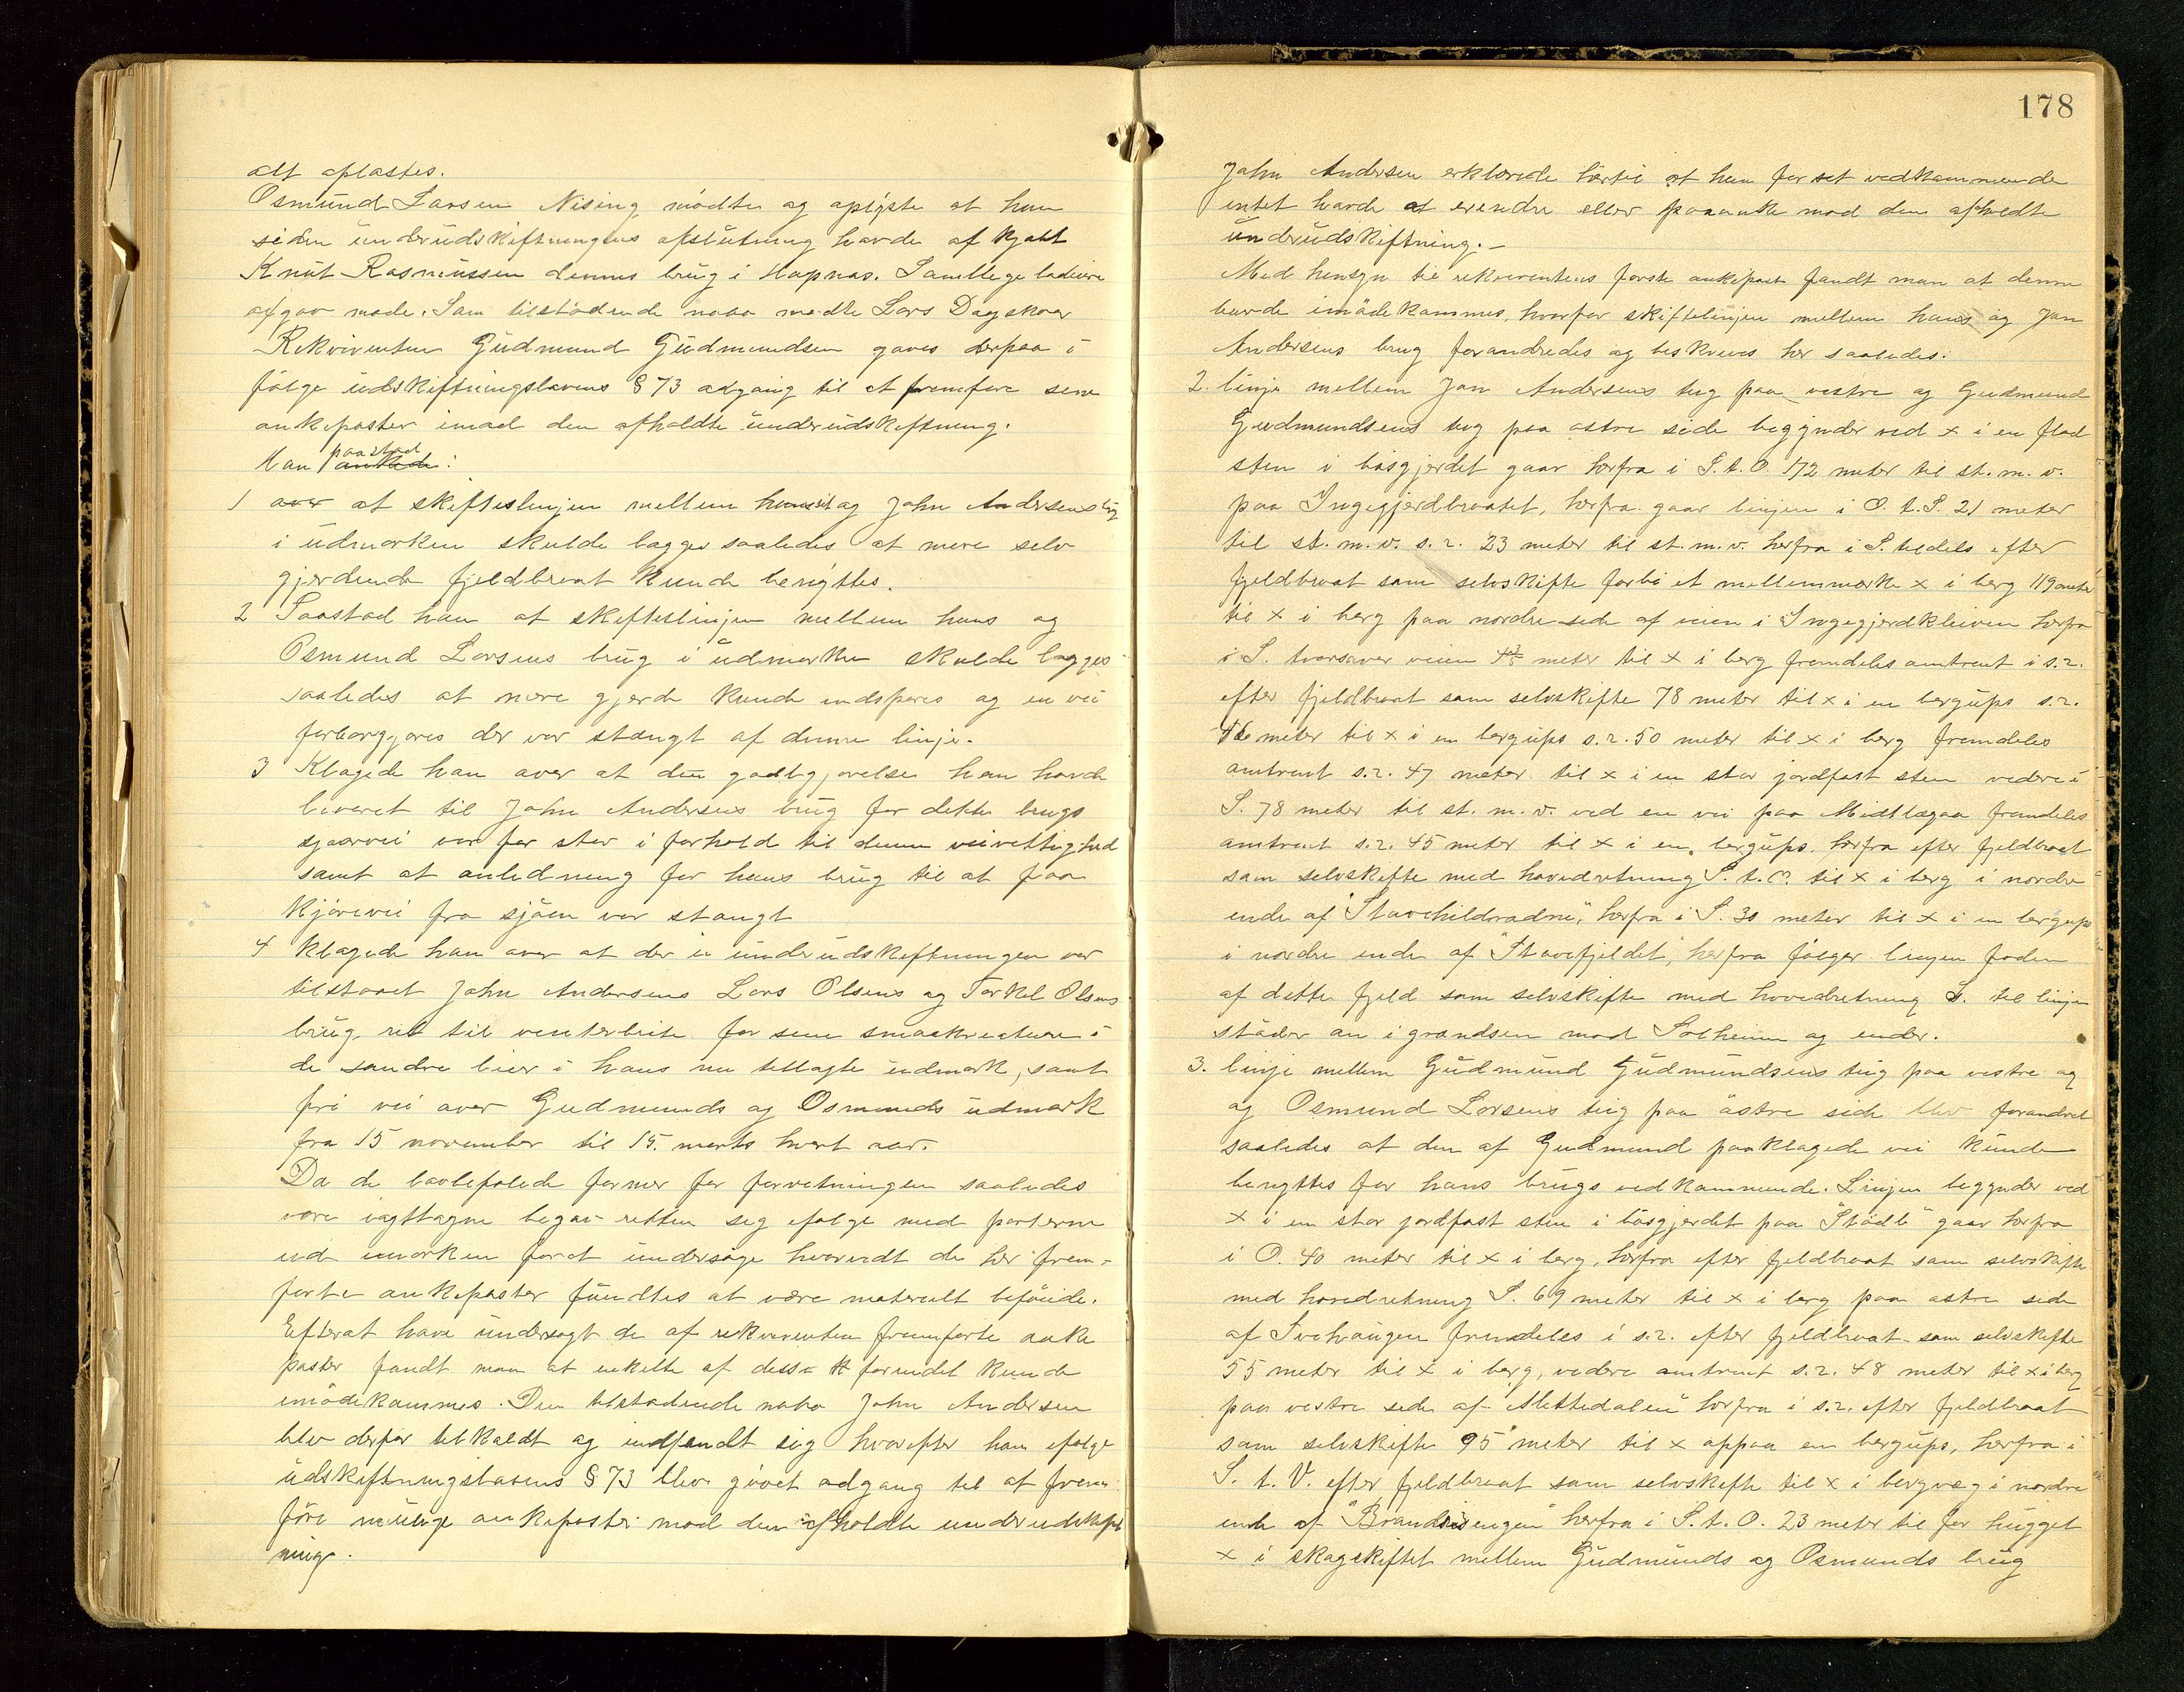 alt oplæstes.
Osmund Larsen Nising mødte og oplyste at han
siden underudskiftningens afslutning havde afkjøbt
Knut Rasmussen dennes brug i Hopnæs. Samtlige lodeiere
afgav møde. Som tilstødende nabo mødte Lars Dagskor
Rekvirenten Gudmund Gudmundsen gaves derpaa i
følge udskiftningslovens § 73 adgang til at fremføre sine
ankeposter imod den afholdte underudskiftning.
Han paastod ankede:
1 over at skifteslinjen mellem hans og John Andersens brug
i udmarken skulde lægges saaledes at mere selv
gjerdende fjeldbrot kunde benyttes.
2 Paastod han at skifteslinjen mellem hans og
Osmund Larsens brug i udmarken skulde lægges
saaledes at mere gjerde kunde indspares og en vei
forborgjøres der var stængt af denne linje.
3 Klagede han over at den godtgjørelse han havde
leveret til John Andersens brug for dette brugs
sjøvei var for stor i forhold til denne veirettighed
samt at anledning for hans brug til at faa
kjørevei fra sjøen var stængt
4 Klagede han over at der i underudskiftningen var
tilstaaet John Andersens Lars Olsens og Torkel Olsens
brug ret til vinterbeite for sine smaakreature i
de søndre lier i hans nu tillagte udmark, samt
fri vei over Gudmunds og Osmunds udmark
fra 15 november til 15. marts hvert aar.
Da de lovbefalede former for forretningen saaledes
vare iagttagne begav retten sig ifølge med parterne
ud i marken for at undersøge hvorvidt de her frem-
førte ankeposter fandtes at være materielt beføiede.
Efter at have undersøgt de af rekvirenten fremførte anke
poster fandt man at enkelte af disse forendel kunde
imødekommes. Den tilstødende nabo John Andersen
blev derfor tilkaldt og indfandt sig hvorefter han ifølge
udskiftningslovens § 73 blev givet adgang til at frem
føre mulige ankeposter mod den afholdte underudskift
ning.
178
John Andersen erklærede hertil at han for set vedkommende
intet havde at erindre eller paaanke mod den afholdte
underudskiftning.-
Med hensyn til rekvirentens første ankepost fandt man at denne
burde imødekommes, hvorfor skiftelinjen mellem hans og Jon
Andersens brug forandredes og beskrives her saaledes:
2. linje mellem Jon Andersens teig paa vestre og Gudmund
Gudmundsens teig paa østre side begynder ved x i en flad
sten i bøsgjerdet gaar herfra i S. t. O. 172 meter til st. m. v.
paa Ingegjerdbrotet, herfra gaar linjen i O. t. S. 21 meter
til st. m. v. s. r. 23 meter til st. m. v. herfra i S. tildels efter
fjeldbrot som selvskifte forbi et mellemmærke x i berg 119 meter
til x i berg paa nordre side af veien i Ingegjerdkleiven herfra
i S. tversover veien meter til x i berg fremdeles omtrent i s. r.
efter fjeldbrot som selvskifte 78 meter til x i en bergups s. r.
46 meter til x i en bergups s. r. 50 meter til x i berg fremdeles
omtrent s. r. 47 meter til x i en stor jordfast sten videre i
S. 78 meter til st. m. v. ved en vei paa Midtlægaa fremdeles
omtrent s. r. 45 meter til x i en bergups. herfra efter fjeldbrot
som selvskifte med hovedretning S. t. O. til x i berg i nordre
ende af "Stavehildradne", herfra i S. 30 meter til x i en bergups
i nordre ende af "Stavefjeldet", herfra følger linjen foden
af dette fjeld som selvskifte med hovedretning S. til linjen
støder an i grændsen mod Solheim og ender.
3. linje mellem Gudmund Gudmundsens teig paa vestre og
og Osmund Larsens teig paa østre side blev forandret
saaledes at den af Gudmund paaklagede vei kunde
benyttes for hans brugs vedkommende. Linjen begynder ved
x i en stor jordfast sten i bøsgjerdet paa "Stødle" gaar herfra
i O. 40 meter til x i berg, herfra efter fjeldbrot som selvskifte
med hovedretning S. 69 meter til x i berg paa østre side
af Svehaugen fremdeles i s. r. efter fjeldbrot som selvskifte
55 meter til x i berg, videre omtrent s. r. 48 meter til x i berg
paa vestre side af "Slettedalen" herfra i s. r. efter fjeldbrot
som selvskifte 95 meter til x oppaa en bergups, herfra i
S. t. V. efter fjeldbrot som selvskifte til x i bergvæg i nordre
ende af "Brandsisengen" herfra i S. t. O. 23 meter til før hugget
x i skogskiftet mellem Gudmunds og Osmunds brug